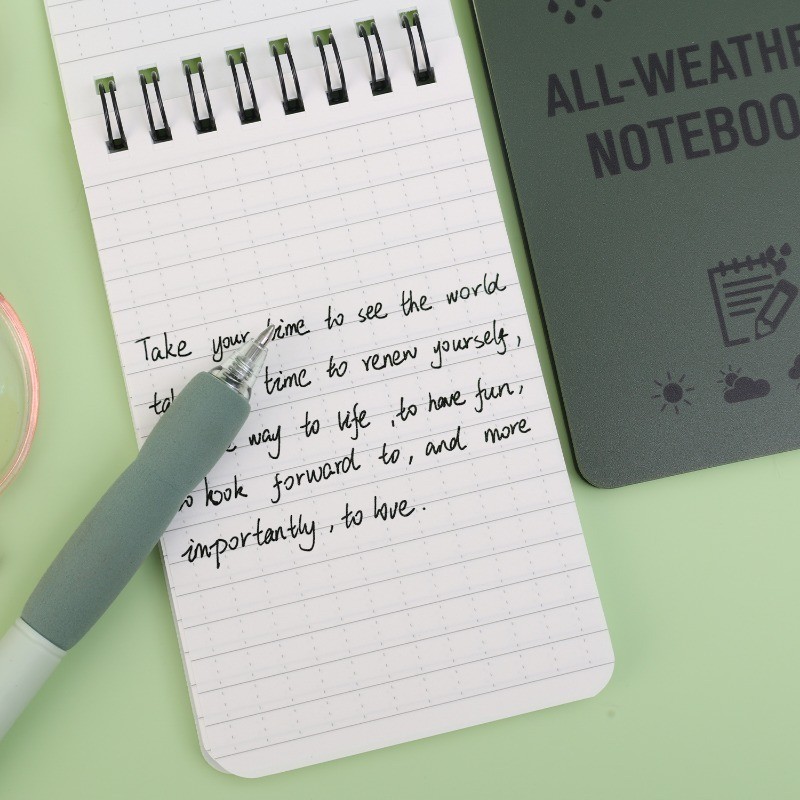 Take your time to see the world
time to renew yourself,
way to life , to have fun,
to look forward to, and more
importantly, to love.
ALL-WEATHE
NOTEBOO